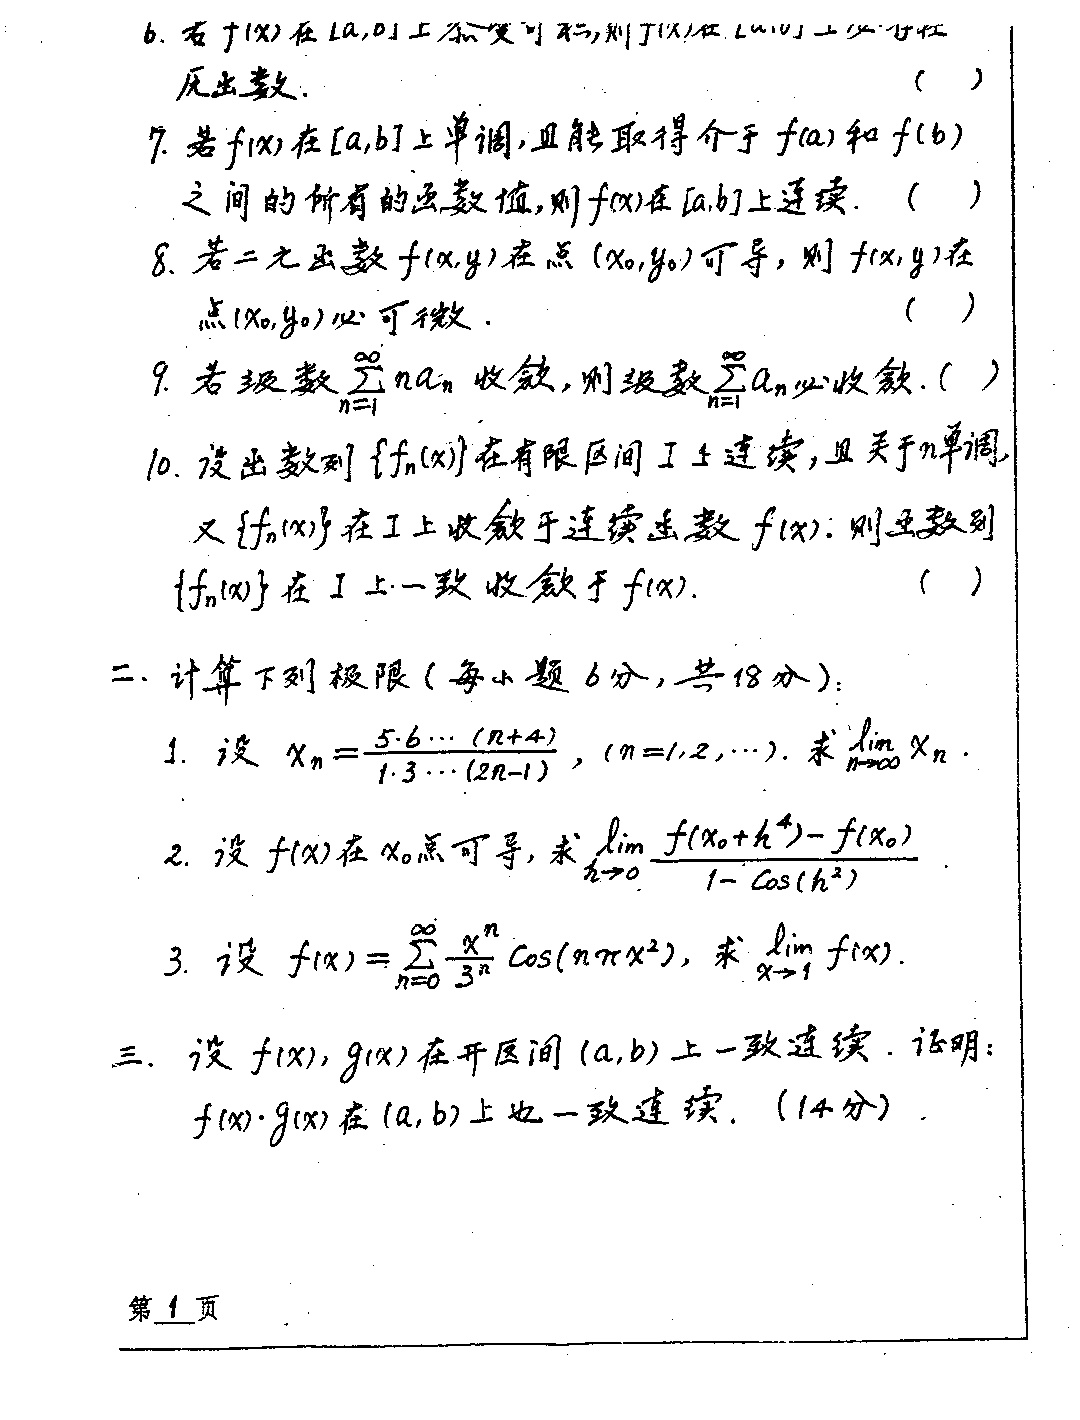 6. 若 f(x) 在 [a,b] 上 可积,则 f(x)在 [a,b] 上必存在
原函数. ( )
7. 若 f(x) 在 [a,b] 上单调,且能取得介于 f(a) 和 f(b)
之间的所有的函数值,则 f(x)在 [a,b] 上连续. ( )
8. 若二元函数 f(x,y) 在点 (x₀,y₀) 可导, 则 f(x,y) 在
点(x₀,y₀) 必可微. ( )
9. 若级数 ∑_{n=1}^{∞} naₙ 收敛, 则级数 ∑_{n=1}^{∞} aₙ 必收敛. ( )
10. 设函数列 {fₙ(x)} 在有限区间 I 上连续, 且关于n单调,
又 {fₙ(x)} 在 I 上收敛于连续函数 f(x). 则函数列
{fₙ(x)} 在 I 上一致收敛于 f(x). ( )
二. 计算下列极限 ( 每小题 6分, 共18分 ):
1. 设 xₙ = \frac{5·6···(n+4)}{1·3···(2n-1)}, (n=1,2,···). 求 lim_{n→∞} xₙ.
2. 设 f(x) 在 x₀点可导, 求 lim_{h→0} \frac{f(x₀+h⁴)-f(x₀)}{1-Cos(h²)}
3. 设 f(x) = ∑_{n=0}^{∞} \frac{xⁿ}{3ⁿ} Cos(nπx²), 求 lim_{x→1} f(x).
三. 设 f(x), g(x) 在开区间 (a,b) 上一致连续. 证明:
f(x)·g(x) 在 (a,b) 上也一致连续. (14分).
第 1 页